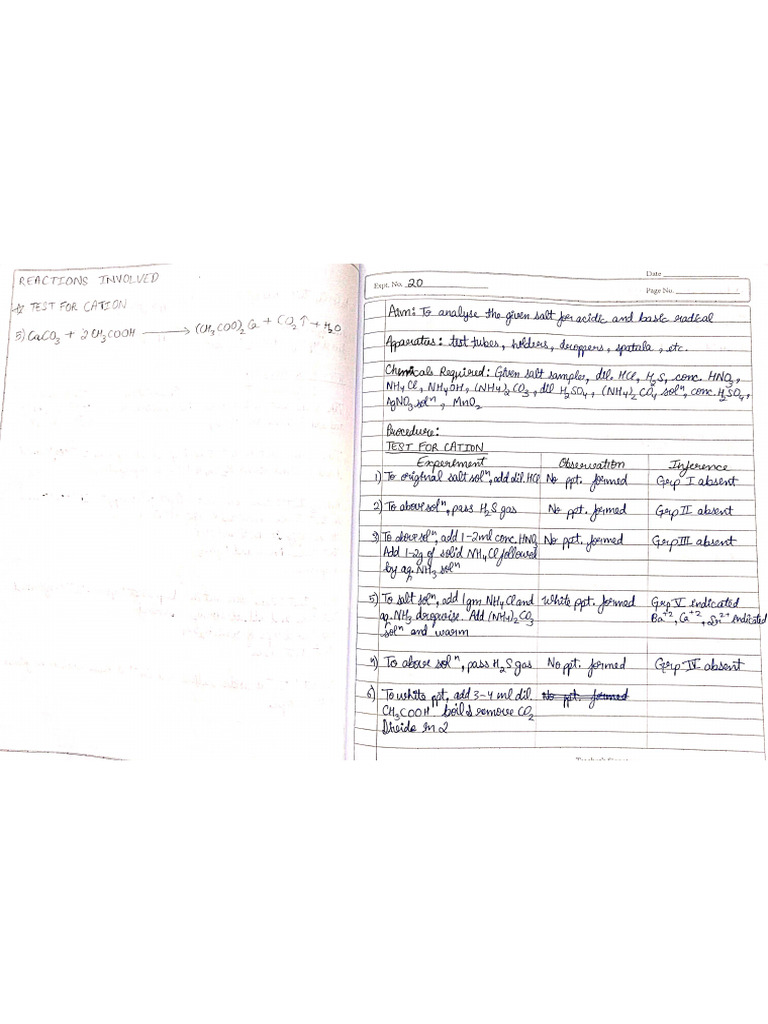 REACTIONS INVOLVED
TEST FOR CATION
5) CaCO3 + 2CH3COOH ⟶ (CH3COO)2Ca + CO2↑ + H2O
Date
Expt. No. 20
Page No.
Aim: To analyse the given salt for acidic and basic radical
Apparatus: test tubes, holders, droppers, spatala, etc.
Chemicals Required: Given salt samples, dil. HCl, H2S, conc. HNO3,
NH4Cl, NH4OH, (NH4)2CO3, dil H2SO4, (NH4)2CO4 solⁿ, conc. H2SO4,
AgNO3 solⁿ, MnO2
Procedure:
TEST FOR CATION
Experiment Observation Inference
1) To original salt solⁿ, add dil. HCl No ppt. formed Grp I absent
2) To above solⁿ, pass H2S gas No ppt. formed Grp II absent
3) To above solⁿ, add 1-2ml conc. HNO3 No ppt. formed Grp III absent
Add 1-2g of solid NH4Cl followed
by aq. NH3 solⁿ
5) To salt solⁿ, add 1gm NH4Cl and White ppt. formed Grp V indicated
aq. NH3 dropwise. Add (NH4)2CO3 Ba+2, Ca+2, Sr2+ indicated
solⁿ and warm
4) To above solⁿ, pass H2S gas No ppt. formed Grp IV absent
6) To white ppt, add 3-4 ml dil. No ppt. formed
CH3COOH. boil & remove CO2
Divide in 2